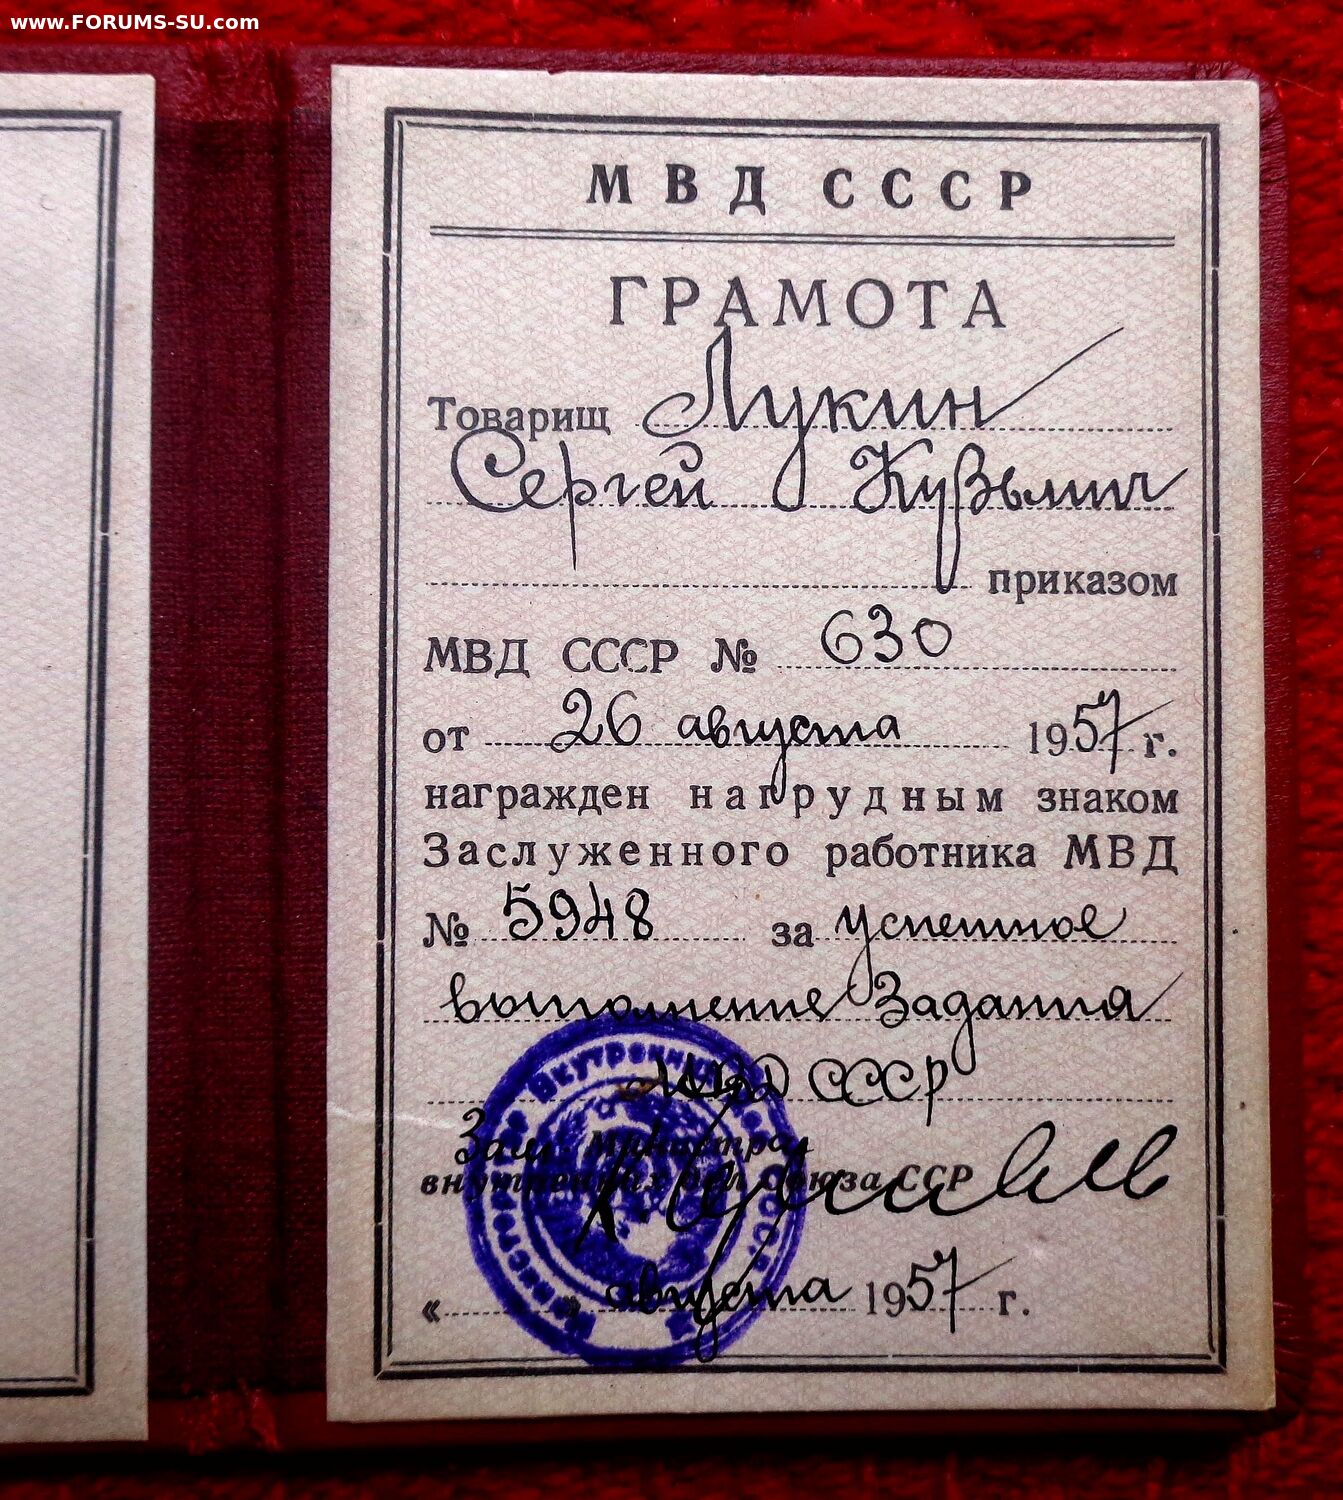 www.FORUMS-SU.com
МВД СССР
ГРАМОТА
Товарищ Лукин
Сергей Кузьмич
приказом
МВД СССР № 630
от 26 августа 1957 г.
награжден нагрудным знаком
Заслуженного работника МВД
№ 5948 за успешное
выполнение Задания
МВД СССР
Зам. министра
внутренних дел Союза ССР
« » августа 1957 г.